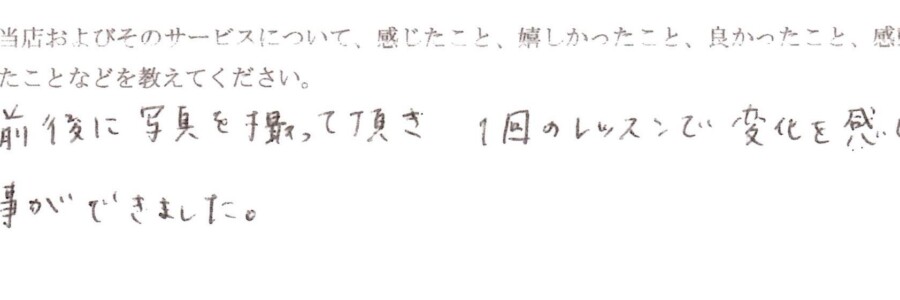 当店およびそのサービスについて、感じたこと、嬉しかったこと、良かったこと、感
たことなどを教えてください。
前後に写真を撮って頂き 1回のレッスンで変化を感じ
事ができました。